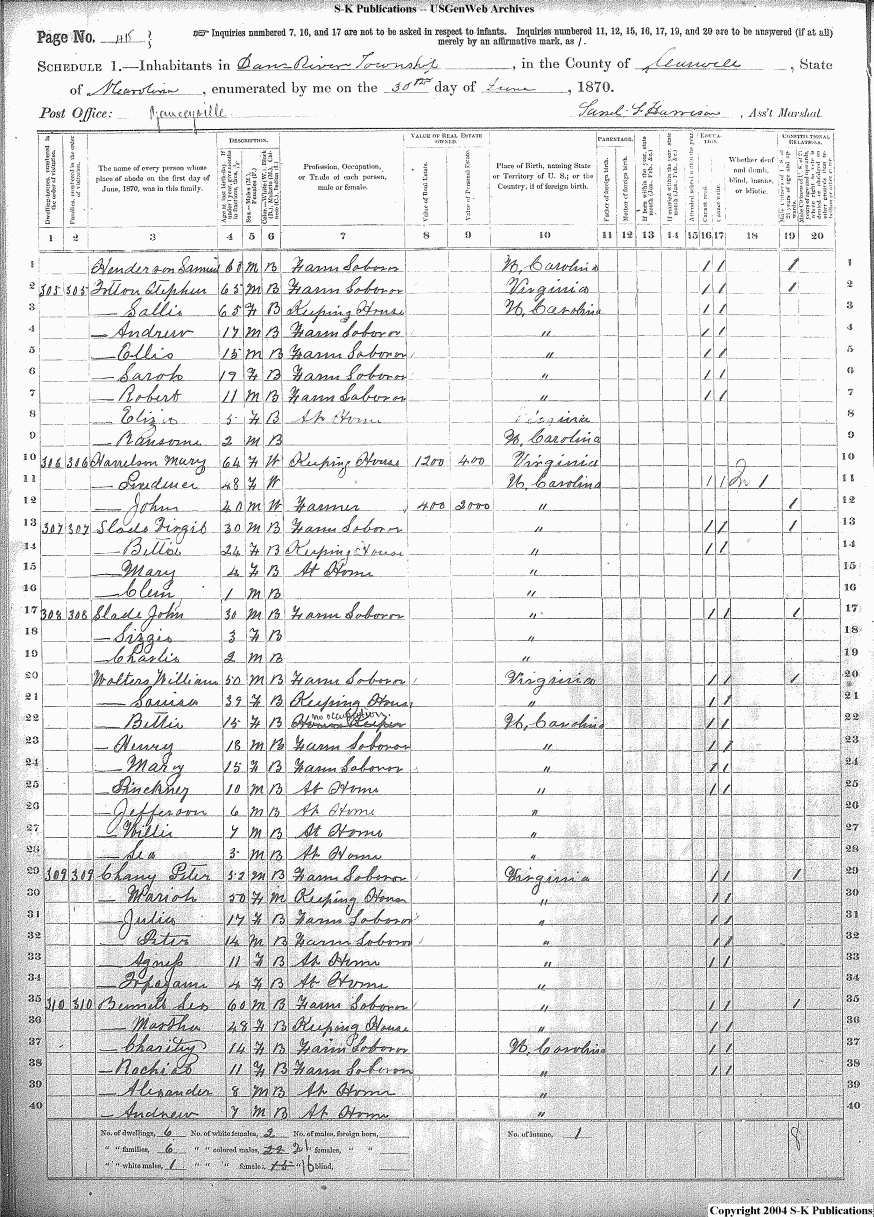 S-K Publications -- USGenWeb Archives
Page No.
☞ Inquiries numbered 7, 16, and 17 are not to be asked in respect to infants. Inquiries numbered 11, 12, 15, 16, 17, 19, and 20 are to be answered (if at all)
merely by an affirmative mark, as /.
SCHEDULE 1.—Inhabitants in Dan River Township, in the County of Caswell, State
of N Carolina, enumerated by me on the 30th day of June, 1870.
Post Office: Yanceyville
Saml. F. Harrison, Ass't Marshal.
DESCRIPTION. VALUE OF REAL ESTATE OWNED. PARENTAGE. EDUCATION. CONSTITUTIONAL RELATIONS.
Dwelling-houses, numbered in the order of visitation.
Families, numbered in the order of visitation.
The name of every person whose place of abode on the first day of June, 1870, was in this family.
Profession, Occupation, or Trade of each person, male or female.
Value of Real Estate.
Value of Personal Estate.
Place of Birth, naming State or Territory of U. S.; or the Country, if of foreign birth.
Father of foreign birth.
Mother of foreign birth.
Attended school within the year.
Cannot read.
Cannot write.
Whether deaf and dumb, blind, insane, or idiotic.
1 2 3 4 5 6 7 8 9 10 11 12 13 14 15 16 17 18 19 20
1 Henderson Samuel 68 M B Farm Laboror N. Carolina / / / 1
2 305 305 Totton Stephen 65 M B Farm Laboror Virginia / / / 2
3 — Sallie 65 F B Keeping House N. Carolina / / 3
4 — Andrew 17 M B Farm Laboror " / / 4
5 — Ellis 15 M B Farm Laboror " / / 5
6 — Sarah 19 F B Farm Laboror " / / 6
7 — Robert 11 M B Farm Laboror " / / 7
8 — Eliza 5 F B At Home Virginia 8
9 — Ransome 2 M B N. Carolina 9
10 306 306 Harrelson Mary 64 F W Keeping House 1200 400 Virginia 10
11 — 48 F W N. Carolina / / In 1 11
12 — John 40 M W Farmer 400 2000 " / 12
13 307 307 Slade Virgil 30 M B Farm Laboror " / / / 13
14 — Bettie 24 F B Keeping House " / / 14
15 — Mary 4 F B At Home " 15
16 — Clem 1 M B " 16
17 308 308 Slade John 30 M B Farm Laboror " / / / 17
18 — Lizzie 3 F B " 18
19 — Charlie 2 M B " 19
20 Walters William 50 M B Farm Laboror Virginia / / / 20
21 — Louisa 39 F B Keeping House " / / 21
22 — Bettie 15 F B no occupation House Keeper N. Carolina / / 22
23 — Henry 18 M B Farm Laboror " / / 23
24 — Mary 15 F B Farm Laboror " / / 24
25 — Pinckney 10 M B At Home " / / 25
26 — Jefferson 6 M B At Home " 26
27 — Willis 7 M B At Home " 27
28 — Lea 3 M B At Home " 28
29 309 309 Chany Peter 52 M B Farm Laboror Virginia / / / 29
30 — Mariah 50 F M Keeping House " / / 30
31 — Julia 17 F B Farm Laboror " / / 31
32 — Peter 14 M B Farm Laboror " / / 32
33 — Agness 11 F B At Home " / / 33
34 — 4 F B At Home " 34
35 310 310 60 M B Farm Laboror " / / / 35
36 — Martha 48 F B Keeping House " / / 36
37 — Charity 14 F B Farm Laboror N. Carolina / / 37
38 — Rachiel 11 F B Farm Laboror " / / 38
39 — Alexander 8 M B At Home " 39
40 — Andrew 7 M B At Home " 40
No. of dwellings, 6 No. of white females, 2 No. of males, foreign born, No. of insane, 1 8
" " families, 6 " " colored males, 22 21 " " females, " "
" " white males, 1 " " " females, 15 16 " " blind,
Copyright 2004 S-K Publications